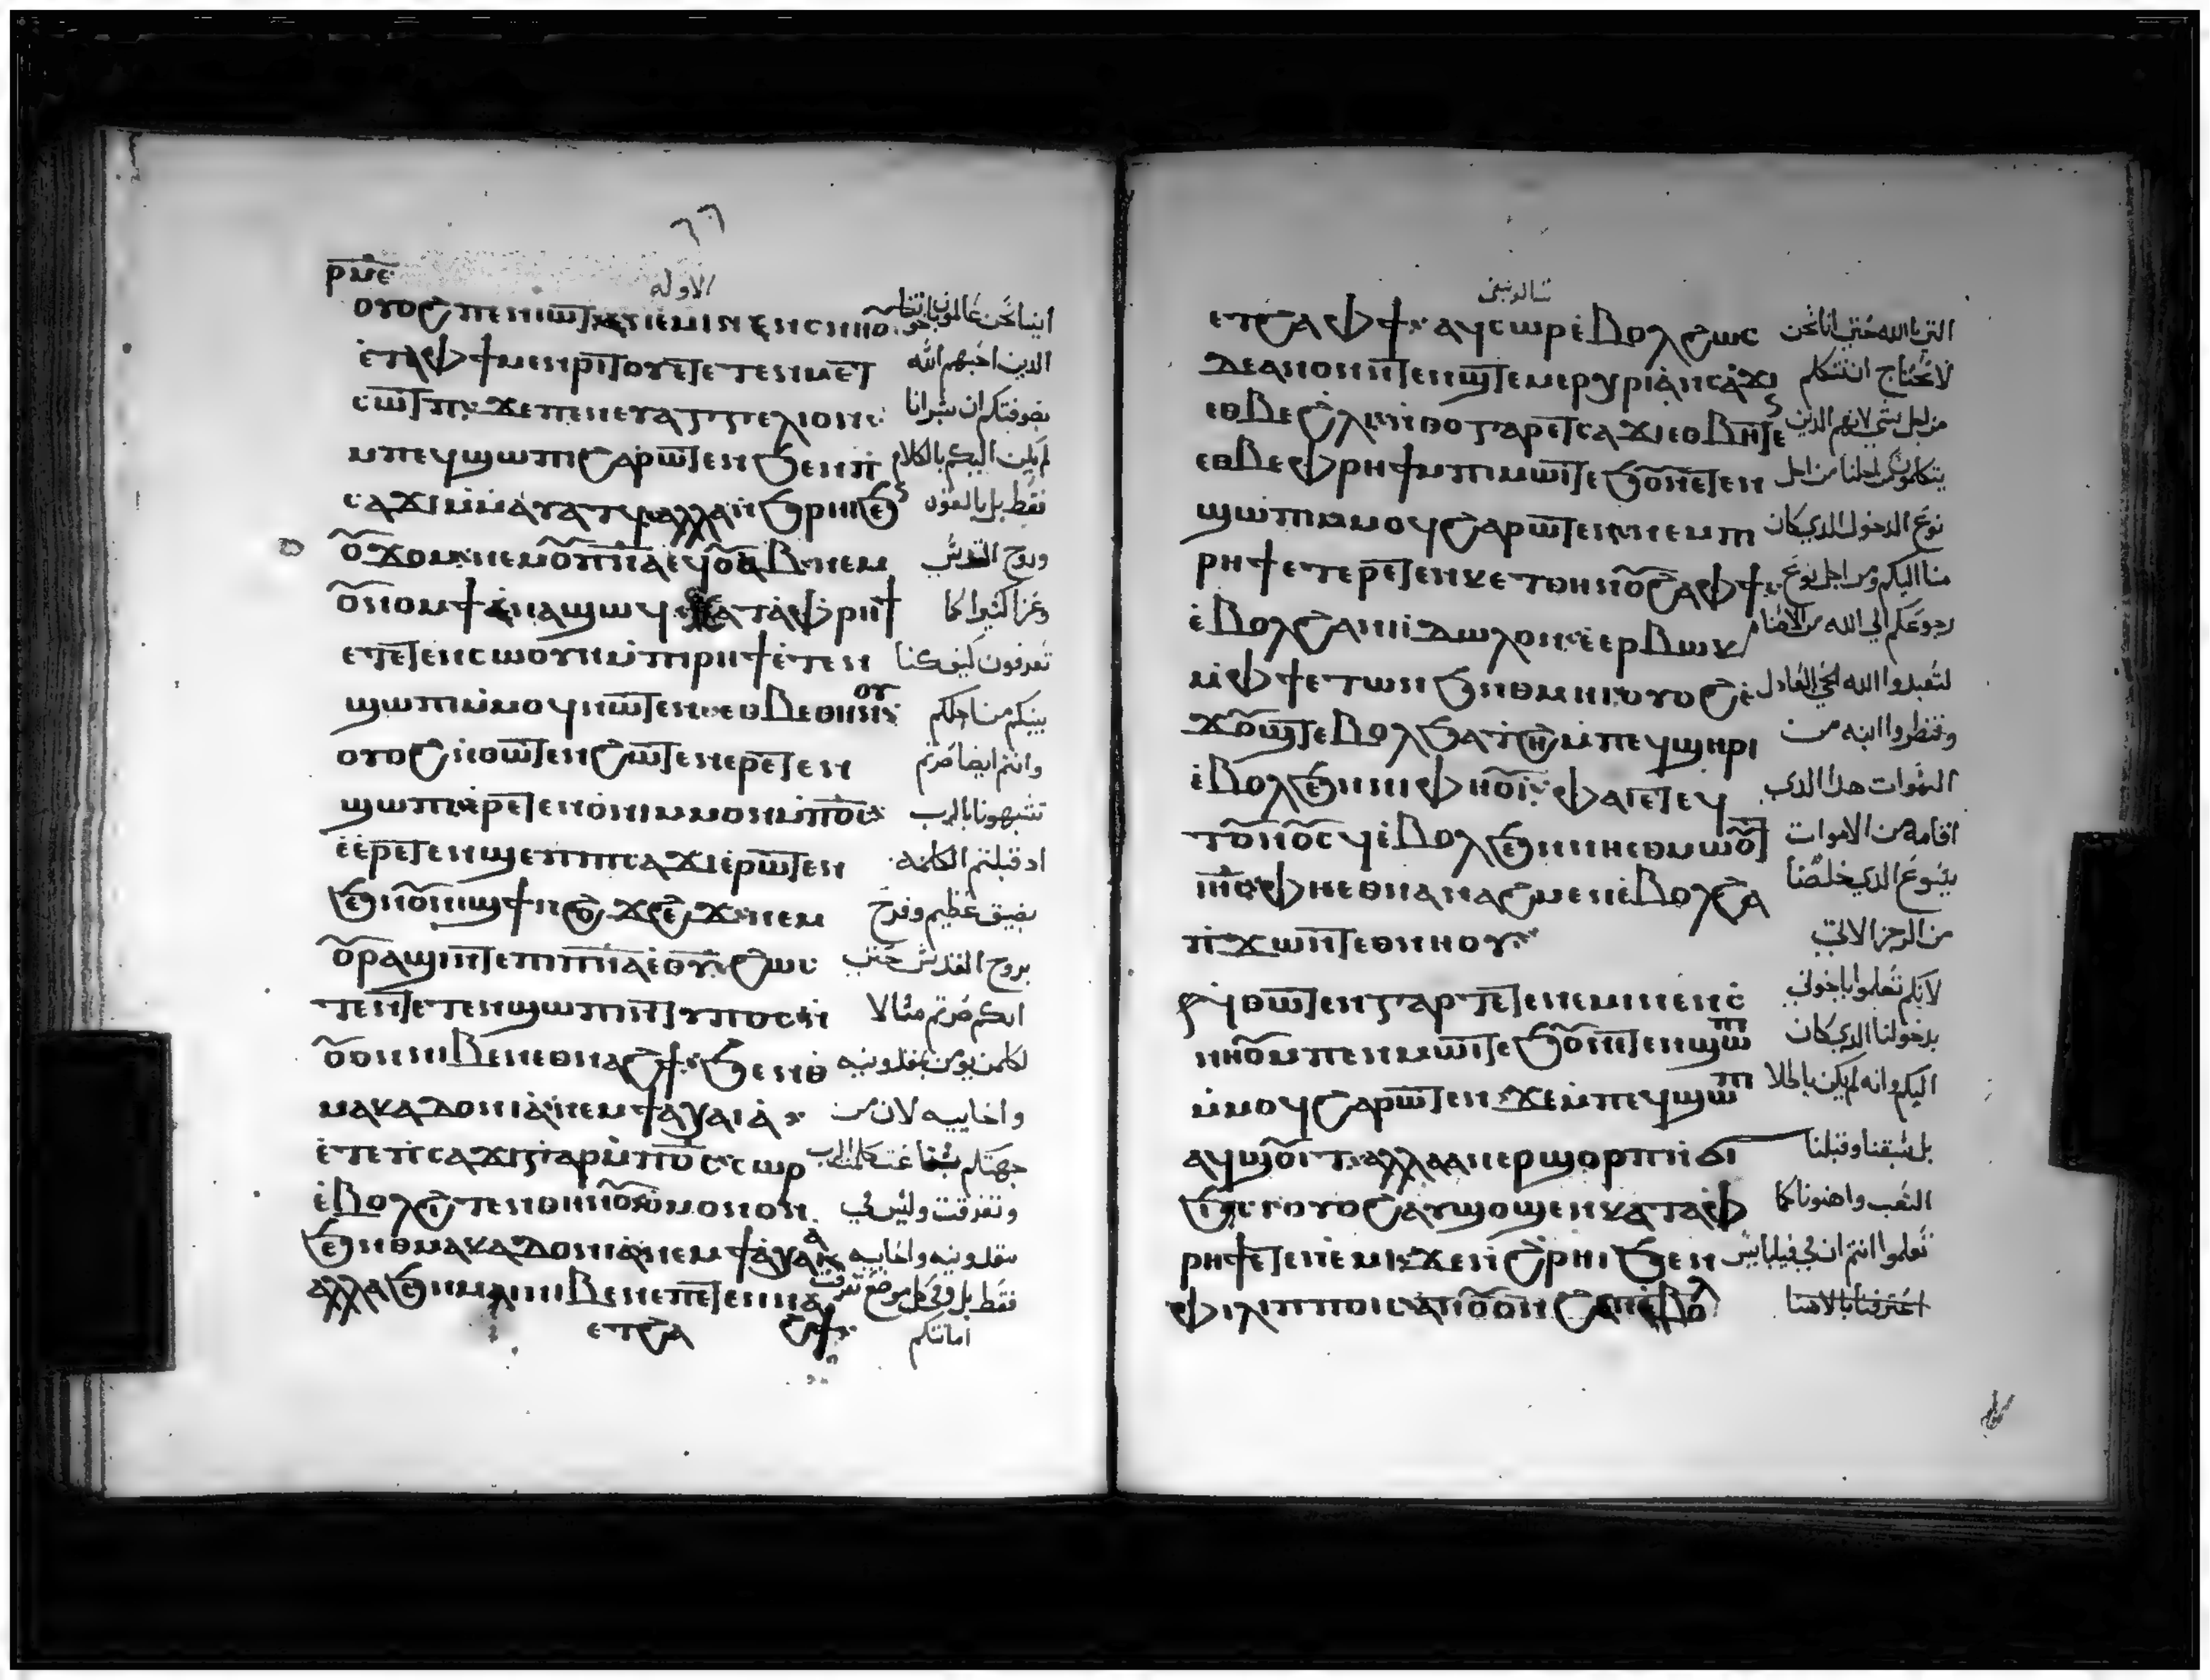 ٦٦
ⲣⲙⲉ الاوله
ⲟⲩⲟϩ ⲡⲉⲛⲓⲱϯ ⲧⲉⲛⲉⲙⲓ ⲛⲉⲛⲥⲛⲏⲟⲩ
ⲉⲧⲁ ⲫϯ ⲙⲉⲛⲣⲓⲧⲟⲩ ⲉⲧⲉⲧⲉⲛⲙⲉⲧ الدين احبهم الله
ⲥⲱⲧⲡ ϫⲉ ⲡⲉⲛⲉⲩⲁⲅⲅⲉⲗⲓⲟⲛ بصوفتكم ان بشرانا
ⲙⲡⲉϥϣⲱⲡⲓ ϩⲁⲣⲱⲧⲉⲛ ϧⲉⲛ ⲡ لم يكن اليكم بالكلام
ⲥⲁϫⲓ ⲙⲙⲁⲩⲁⲧϥ ⲁⲗⲗⲁ ⲛϧⲣⲏⲓ ϧⲉⲛ فقط بل بالقوه
ⲟⲩϫⲟⲙ ⲛⲉⲙ ⲟⲩⲡⲛⲁ ⲉϥⲟⲩⲁⲃ ⲛⲉⲙ وروح القدس
ⲟⲩⲛⲟⲙϯ ⲉⲛⲁϣⲱϥ ⲕⲁⲧⲁ ⲫⲣⲏϯ وعزا كثيرا كما
ⲉⲧⲉⲧⲉⲛⲥⲱⲟⲩⲛ ⲙⲡⲣⲏϯ ⲉⲧⲉⲛ تعرفون كيف كنا
ϣⲱⲡ ⲙⲙⲟϥ ⲛⲱⲧⲉⲛ ⲉⲑⲃⲉ ⲑⲏⲛⲟⲩ بينكم من اجلكم
ⲟⲩⲟϩ ⲛⲑⲱⲧⲉⲛ ϩⲱⲧⲉⲛ ⲉⲣⲉⲧⲉⲛ وانتم ايضا صرتم
ϣⲱⲡⲓ ⲉⲣⲉⲧⲉⲛⲟⲛⲓ ⲙⲙⲟⲛ ⲙⲡⲟⲥ تتشبهونا بالرب
ⲉⲉⲣⲉⲧⲉⲛϣⲉⲡ ⲡⲥⲁϫⲓ ⲉⲣⲱⲧⲉⲛ اد قبلتم الكلمه
ϧⲉⲛ ⲟⲩⲛⲓϣϯ ⲛϩⲟϫϩⲉϫ ⲛⲉⲙ بضيق عظيم وفرح
ⲟⲩⲣⲁϣⲓ ⲛⲧⲉ ⲡⲓⲡⲛⲁ ⲉⲑⲩ ϩⲱⲥ بروح القدس حتى
ⲧⲉⲛⲧⲉⲧⲉⲛϣⲱⲡⲓ ⲛⲧⲩⲡⲟⲥ ⲛ انكم صرتم مثالا
ⲟⲩⲟⲛ ⲛⲓⲃⲉⲛ ⲉⲑⲛⲁϩϯ ϧⲉⲛ ⲑ لكلمن يومن بمقدونيه
ⲙⲁⲕⲁⲇⲟⲛⲓⲁ ⲛⲉⲙ ϯⲁⲭⲁⲓⲁ واخاييه لان من
ⲉⲧⲉ ⲡⲥⲁϫⲓ ⲅⲁⲣ ⲙⲡⲟⲥ ⲥⲱⲣ
ⲉⲃⲟⲗ ϩⲓⲧⲉⲛ ⲑⲏⲛⲟⲩ ⲟⲩ ⲙⲟⲛⲟⲛ وتفرقت وليس في
ϧⲉⲛ ⲑⲙⲁⲕⲁⲇⲟⲛⲓⲁ ⲛⲉⲙ ϯⲁⲭⲁⲓⲁ مقدونيه واخاييه
ⲁⲗⲗⲁ ϧⲉⲛ ⲙⲁⲓ ⲛⲓⲃⲉⲛ ⲡⲉⲧⲉⲛⲛⲁ فقط بل وفي كل موضع تفرقت
ϩϯ امانتكم
ⲉⲧϩⲁ
تسالونيقي
ⲉⲧϩⲁ ⲫϯ ⲁϥⲥⲱⲣ ⲉⲃⲟⲗ ϩⲱⲥ التى بالله حتى اننا نحن
ⲇⲉ ⲁⲛⲟⲛ ⲛⲧⲉⲛϣⲧⲉⲙⲉⲣⲭⲣⲓⲁ ⲛⲥⲁϫⲓ لا نحتاج ان نتكلم
ⲉⲑⲃⲉ ϩⲗⲓ ⲛⲑⲟ ⲅⲁⲣ ⲉⲧⲥⲁϫⲓ ⲉⲑⲃⲏⲧⲉ من اجل شي لانهم الدين
ⲉⲑⲃⲉ ⲫⲣⲏϯ ⲙⲡⲓⲙⲱⲓⲧ ⲉϧⲟⲩⲛ ⲉⲧⲉⲛ يتكلمون من اجلنا من اجل
ϣⲱⲡ ⲙⲙⲟϥ ϩⲁⲣⲱⲧⲉⲛ ⲛⲉⲙ ⲡ نوع الدخول الدي كان
ⲣⲏϯ ⲉⲧⲉⲣⲉⲧⲉⲛⲕⲉⲧ ⲑⲏⲛⲟⲩ ϩⲁ ⲫϯ منا اليكم ومن اجل نوع
ⲉⲃⲟⲗ ϩⲁ ⲛⲓⲓⲇⲱⲗⲟⲛ ⲉⲉⲣⲃⲱⲕ رجوعكم الي الله من الاصنام
ⲙⲫϯ ⲉⲧⲱⲛϧ ⲛⲑⲙⲏⲓ ⲟⲩⲟϩ ⲉ لتعبدوا الله الحي العادل
ϫⲟⲩϣⲧ ⲉⲃⲟⲗ ϧⲁⲧϩⲏ ⲙⲡⲉϥϣⲏⲣⲓ وتنظروا ابنه من
ⲉⲃⲟⲗ ϧⲉⲛ ⲛⲓⲫⲏⲟⲩⲓ ⲫⲁⲓ ⲉⲧⲉϥ السموات هدا الدي
ⲧⲟⲩⲛⲟⲥϥ ⲉⲃⲟⲗ ϧⲉⲛ ⲛⲏⲉⲑⲙⲱⲟⲩⲧ اقامه من الاموات
ⲓⲏⲥ ⲫⲏⲉⲑⲛⲁⲛⲁϩⲙⲉⲛ ⲉⲃⲟⲗ ϩⲁ يسوع الدي خلصنا
ⲡϫⲱⲛⲧ ⲉⲑⲛⲏⲟⲩ من الرجز الاتي
ⲛⲑⲱⲧⲉⲛ ⲅⲁⲣ ⲧⲉⲧⲉⲛⲉⲙⲓ ⲛⲉⲛⲥ لانكم تعلموا يا اخوتي
ⲛⲏⲟⲩ ⲙⲡⲉⲛⲙⲱⲓⲧ ⲉϧⲟⲩⲛ ⲉⲧⲉⲛϣⲱⲡ بدخولنا الدي كان
ⲙⲙⲟϥ ϩⲁⲣⲱⲧⲉⲛ ϫⲉ ⲙⲡⲉϥϣⲱⲡ اليكم وانه لم يكن باطلا
ⲁϥϣⲟⲩⲓⲧ ⲁⲗⲗⲁ ⲁⲛⲉⲣϣⲟⲣⲡ ⲛϭⲓ بل سبقنا وقبلنا
ϧⲓⲥⲓ ⲟⲩⲟϩ ⲁⲩϣⲟϣⲉⲛ ⲕⲁⲧⲁ ⲫ التعب واهنونا كما
ⲣⲏϯ ⲉⲧⲉⲛⲉⲙⲓ ϫⲉ ⲛϩⲣⲏⲓ ϧⲉⲛ تعلموا انتم ان في فيلبايس
ⲫⲓⲗⲓⲡⲡⲟⲓⲥ ⲁⲛⲟⲩⲟⲛϩⲉⲛ ⲉⲃⲟⲗ اعترفنا بالاهنا